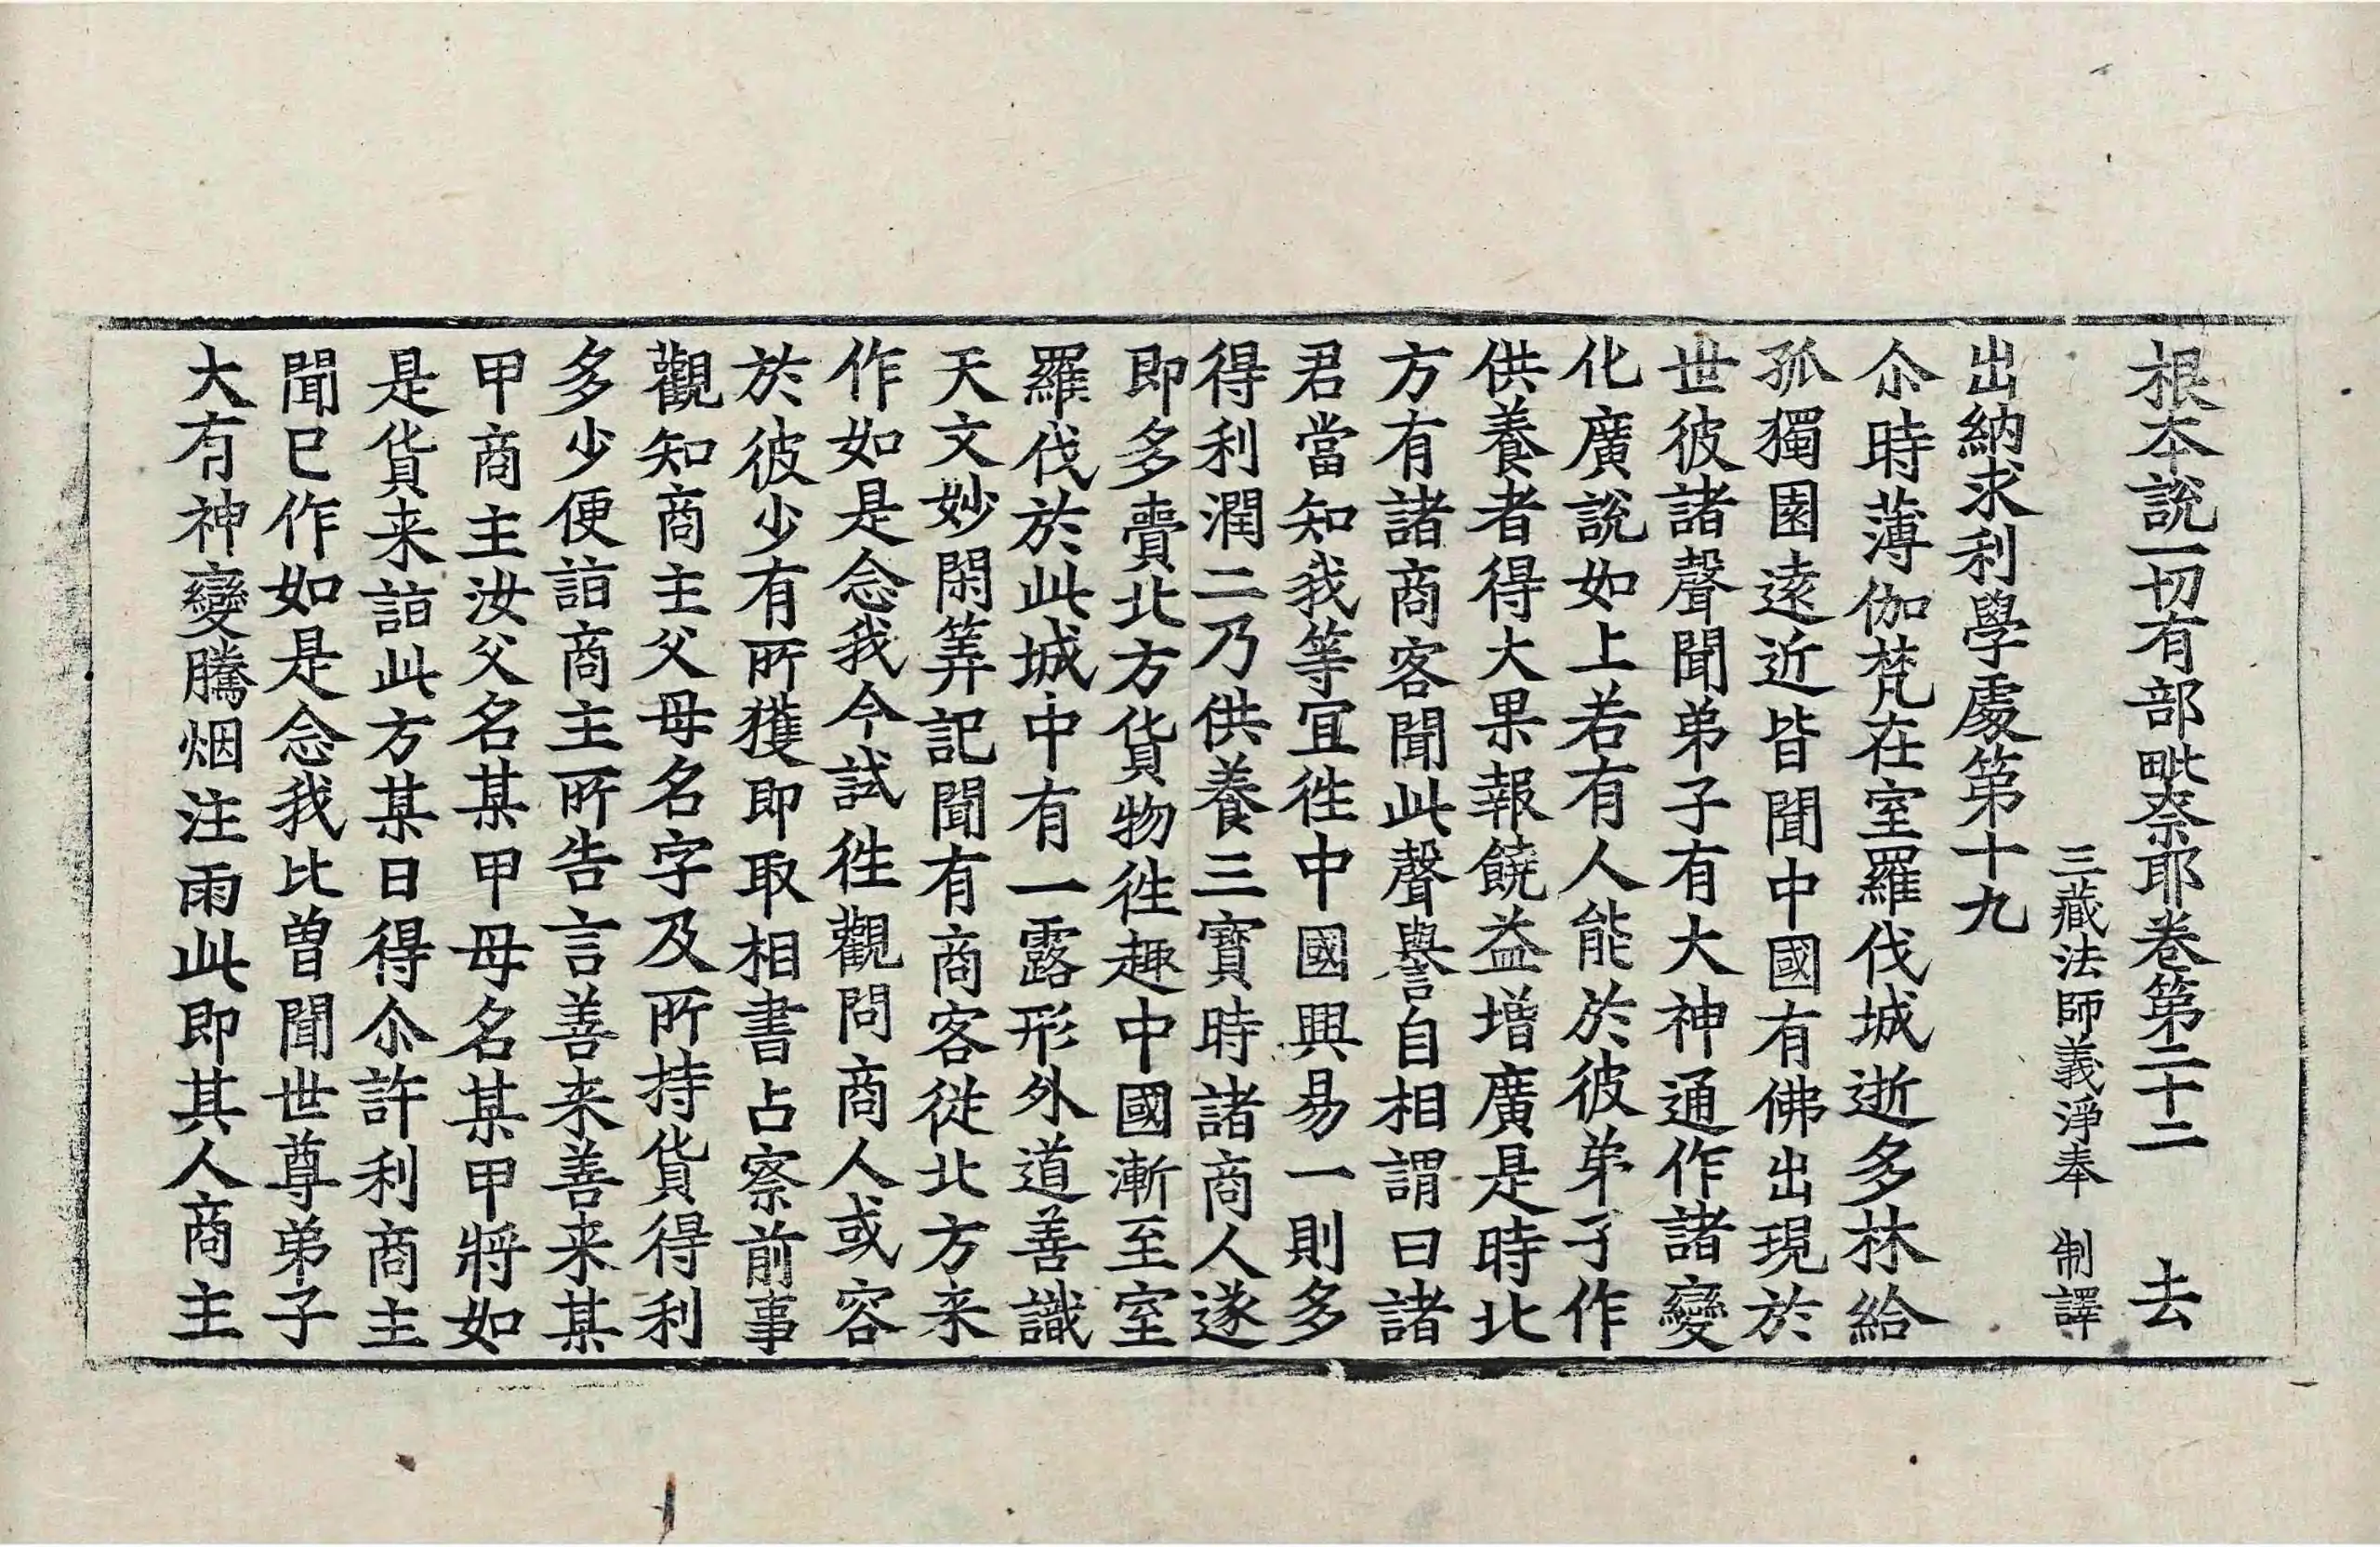 根本說一切有部毗奈耶卷第二十二 去
三藏法師義淨奉 制譯
出納求利學處第十九
尒時薄伽梵在室羅伐城逝多林給
孤獨園遠近皆聞中國有佛出現於
世彼諸聲聞弟子有大神通作諸變
化廣說如上若有人能於彼弟子作
供養者得大果報饒益增廣是時北
方有諸商客聞此聲譽自相謂曰諸
君當知我等宜徃中國興易一則多
得利潤二乃供養三寶時諸商人遂
即多賷北方貨物徃趣中國漸至室
羅伐於此城中有一露形外道善識
天文妙閑筭記聞有商客從北方来
作如是念我今試徃觀問商人或容
於彼少有所獲即取相書占察前事
觀知商主父母名字及所持貨得利
多少便詣商主所告言善来善来某
甲商主汝父名某甲母名某甲將如
是貨来詣此方某日得尒許利商主
聞已作如是念我比曾聞世尊弟子
大有神變騰烟注雨此即其人商主